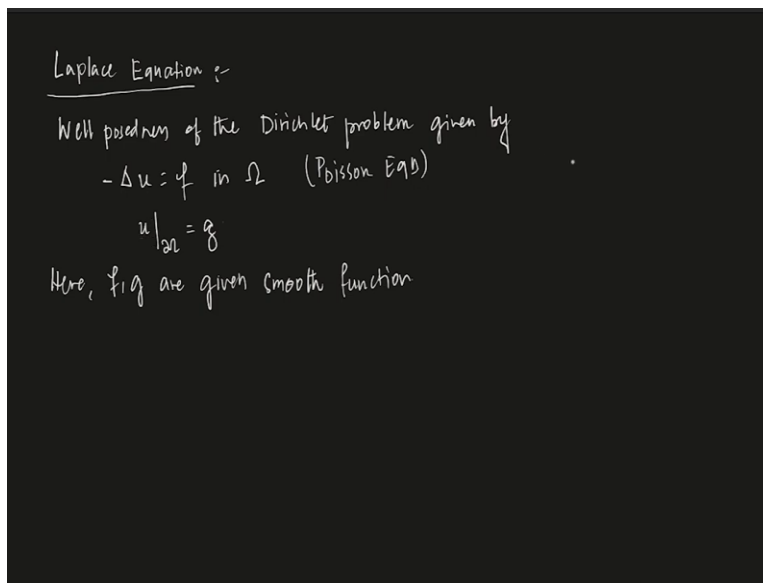 Laplace Equation :-
Well posedness of the Dirichlet problem given by
- Δu = f in Ω (Poisson Eqn)
u|∂Ω = g
Here, f, g are given smooth function